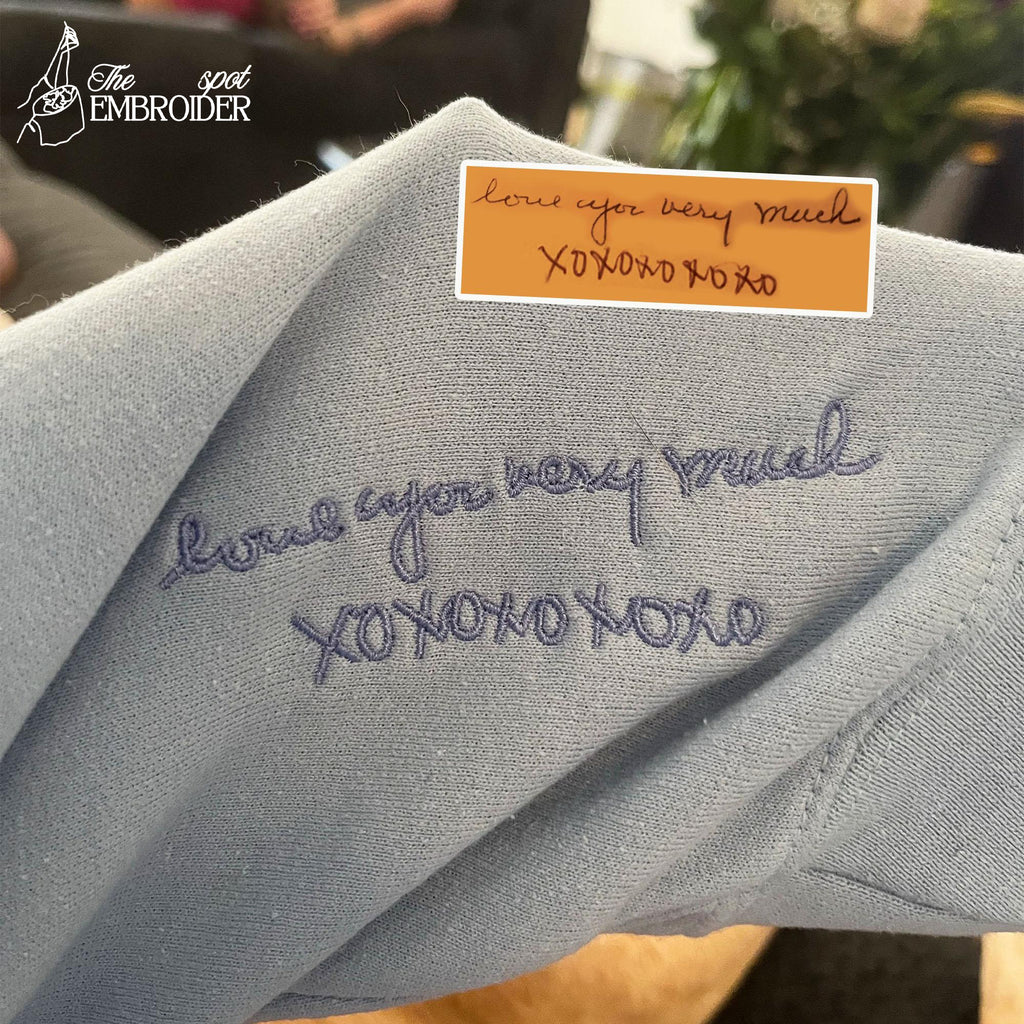 The spot
EMBROIDER
love you very much
XOXOXOXOXO
love you very much
XOXOXOXOXO